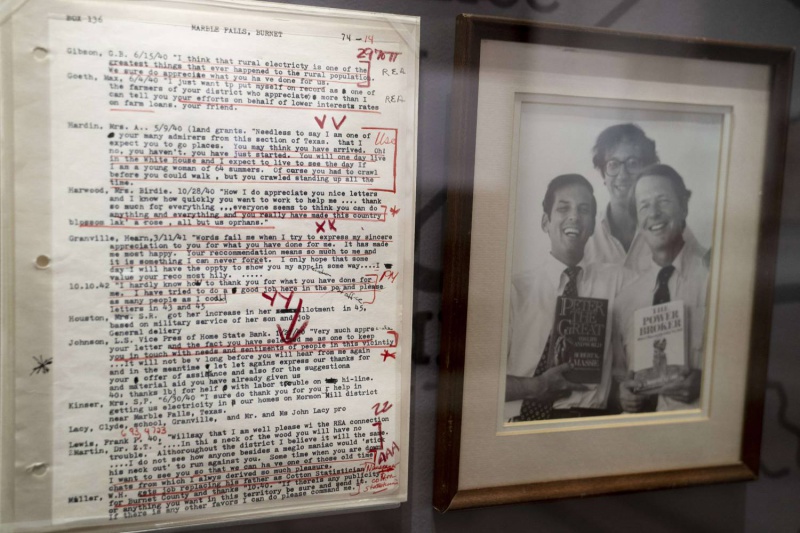 BOX 136
MARBLE FALLS, BURNET
74 - 14
Gibson, G.B. 6/15/40 "I think that rural electricity is one of the
greatest things that ever happened to the rural population.
We sure do appreciate what you ha ve done for us.
REA
Goeth, Max, 6/4/40 "I just want tp put myself on record as one of
the farmers of your district who appreciate more than I
can tell you your efforts on behalf of lower interests rates
on farm loans. your friend.
REA
Hardin, Mrs. A.. 5/9/40 (land grants. "Needless to say I am one of
your many admirers from this section of Texas. that I
expect you to go places. You may think you have arrived. Oh!
no, you haven't; you have just started. You will one day live
in the White House and I expect to live to see the day If
I am a young woman of 64 summers. Of course you had to crawl
before you could walk , but you crawled standing up all the
time.
Use
Harwood, Mrs. Birdie. 10/28/40 "How I do appreciate you nice letters
and I know how quickly you want to work to help me .... thank
so much for everything ...everyone seems to think you can do
anything and everything and you really have made this country
blossom lak' a rose , all but us oprhans."
Granville, Hearn, 3/11/41 "Words fail me when I try to express my sincere
appreciation to you for what you have done for me. It has made
me most happy. Your reccommendation means so much to me and
it is something I can never forget. I only hope that some
day I will have the oppty to show you my app,in some way....I
value your reco most hily. .....
10.10.42 "I hardly know how to thank you for what you have done for
me. I have tried to do a good job here in the po and please
as many people as I cod;
letters in 43 and 45
Houston, Mrs. S.R. got her increase in her allotment in 45,
based on military service of her son and job
General dellery
Johnson, L.S. Vice Pres of Home State Bank. "Very much
your letter and the fact you have selected me as one to keep
you in touch with needs and sentiments of people in this vicintiy
....it will not be v long before you will hear from me again
and in the meantime let let again express our thanks for
your offer of assistance and also for the suggestions
and material aid you have already given us
40. thanks lbj for helf with labor trouble on hi-line.
Kinser, Mrs. S.P. 6/30/40 "I sure do thank you for your help in
getting us electricity in our homes on Mormon Mill district
near Marble Falls, Texas.
Lacy, Clyde, school, Granville, and Mr. and Ms John Lacy pro
22
Lewis, Frank P. 40. "Willsay that I am well please wi the REA connection
Martin, Dr. Z.T. ....In thi s neck of the wood you will have no
trouble. Althoroughout the district I believe it will the same.
....I do not see how anyones besides a meglo maniac would 'stick
his neck out' to run against you. Some time when you are down
I want to see you so that we can ha ve one of those old time
chats from which I always derived so much pleasure.
AAA
Müller, W.H. gets job replacing his father as Cotton Statistician
for Burnet County and thanks 10.40. "If theres any publicity
or anything you want in this territory be sure and send it.
If there is any other favors I can do please command me.
PETER
THE
GREAT
ROBERT K.
MASSIE
THE
POWER
BROKER